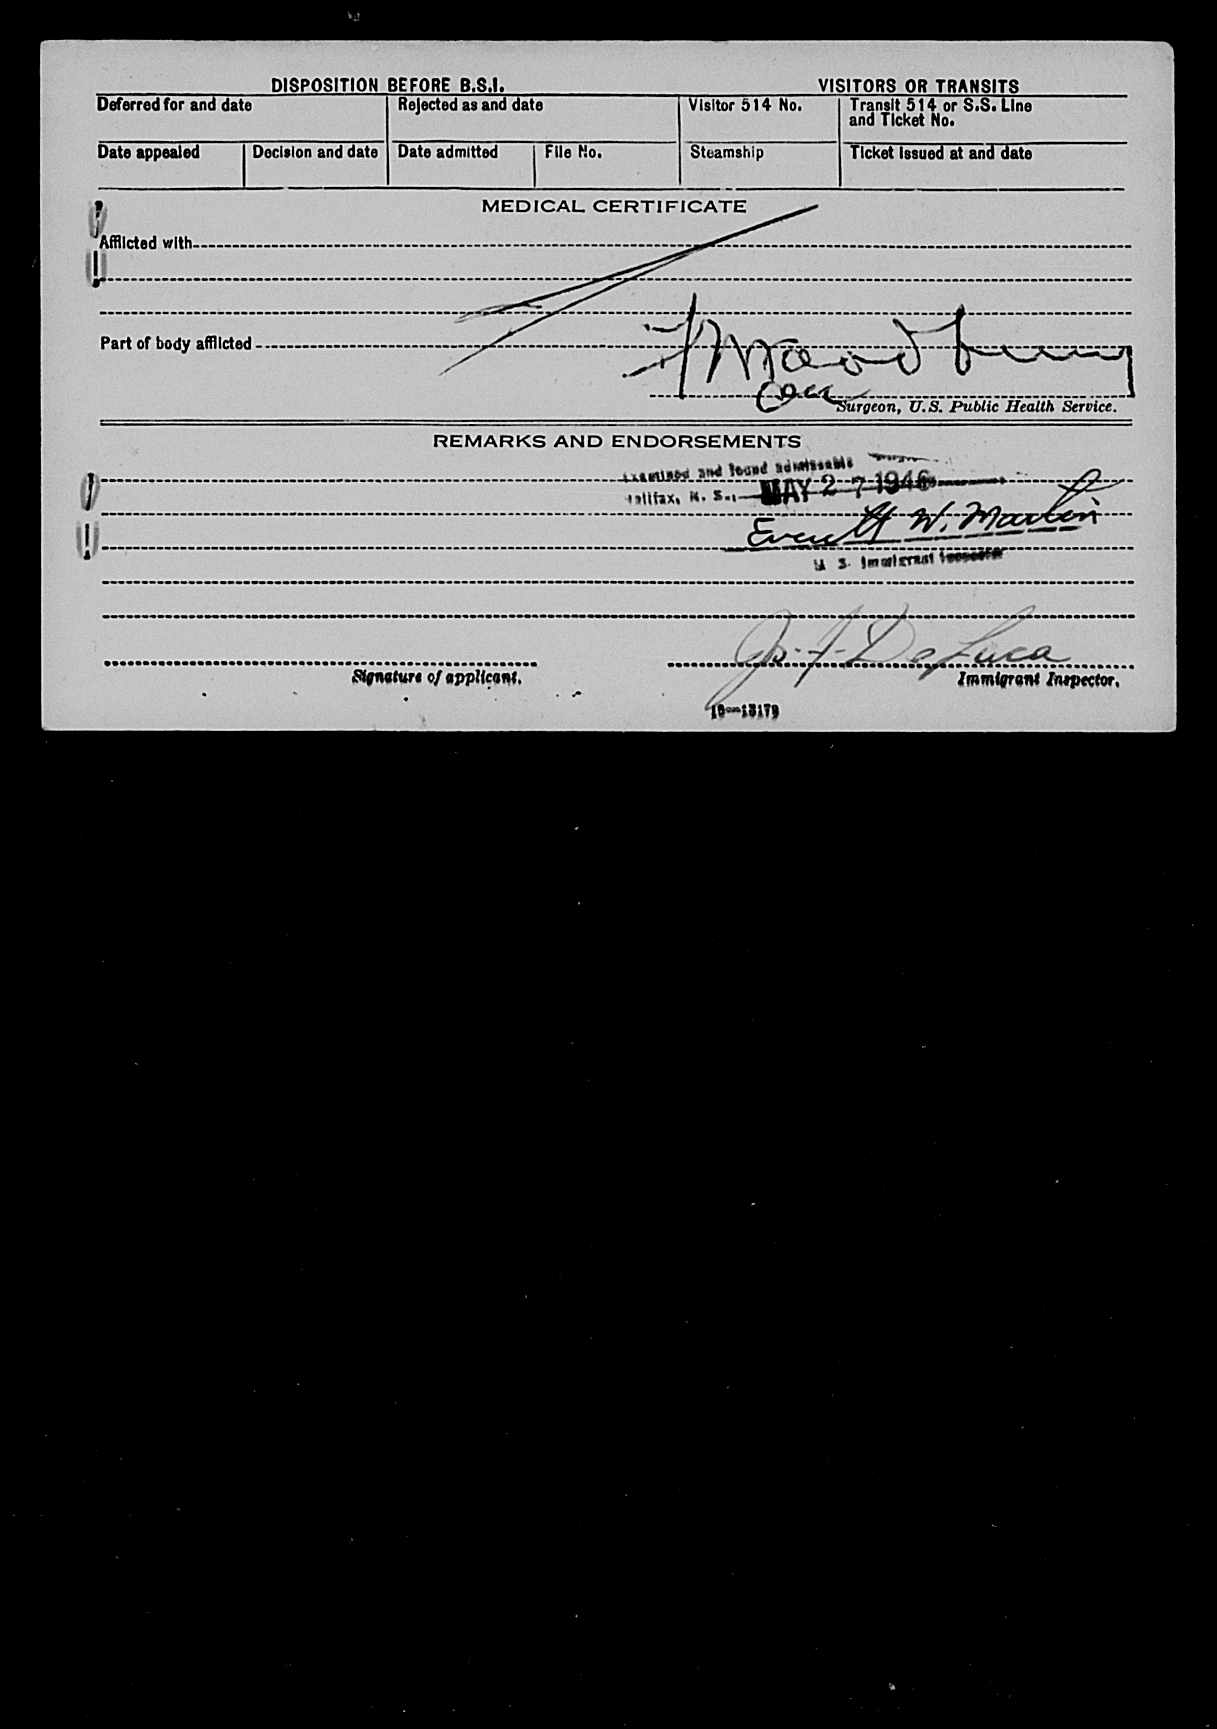 DISPOSITION BEFORE B.S.I. VISITORS OR TRANSITS
Deferred for and date Rejected as and date Visitor 514 No. Transit 514 or S.S. Line and Ticket No.
Date appealed Decision and date Date admitted File No. Steamship Ticket issued at and date
MEDICAL CERTIFICATE
Afflicted with
Part of body afflicted
Surgeon, U.S. Public Health Service.
REMARKS AND ENDORSEMENTS
Examined and found admissable
Halifax, N. S., MAY 27 1946
Everett W. Martin
U S. Immigrant Inspector
Jos. F. DeLuca
Signature of applicant. Immigrant Inspector.
16—13179